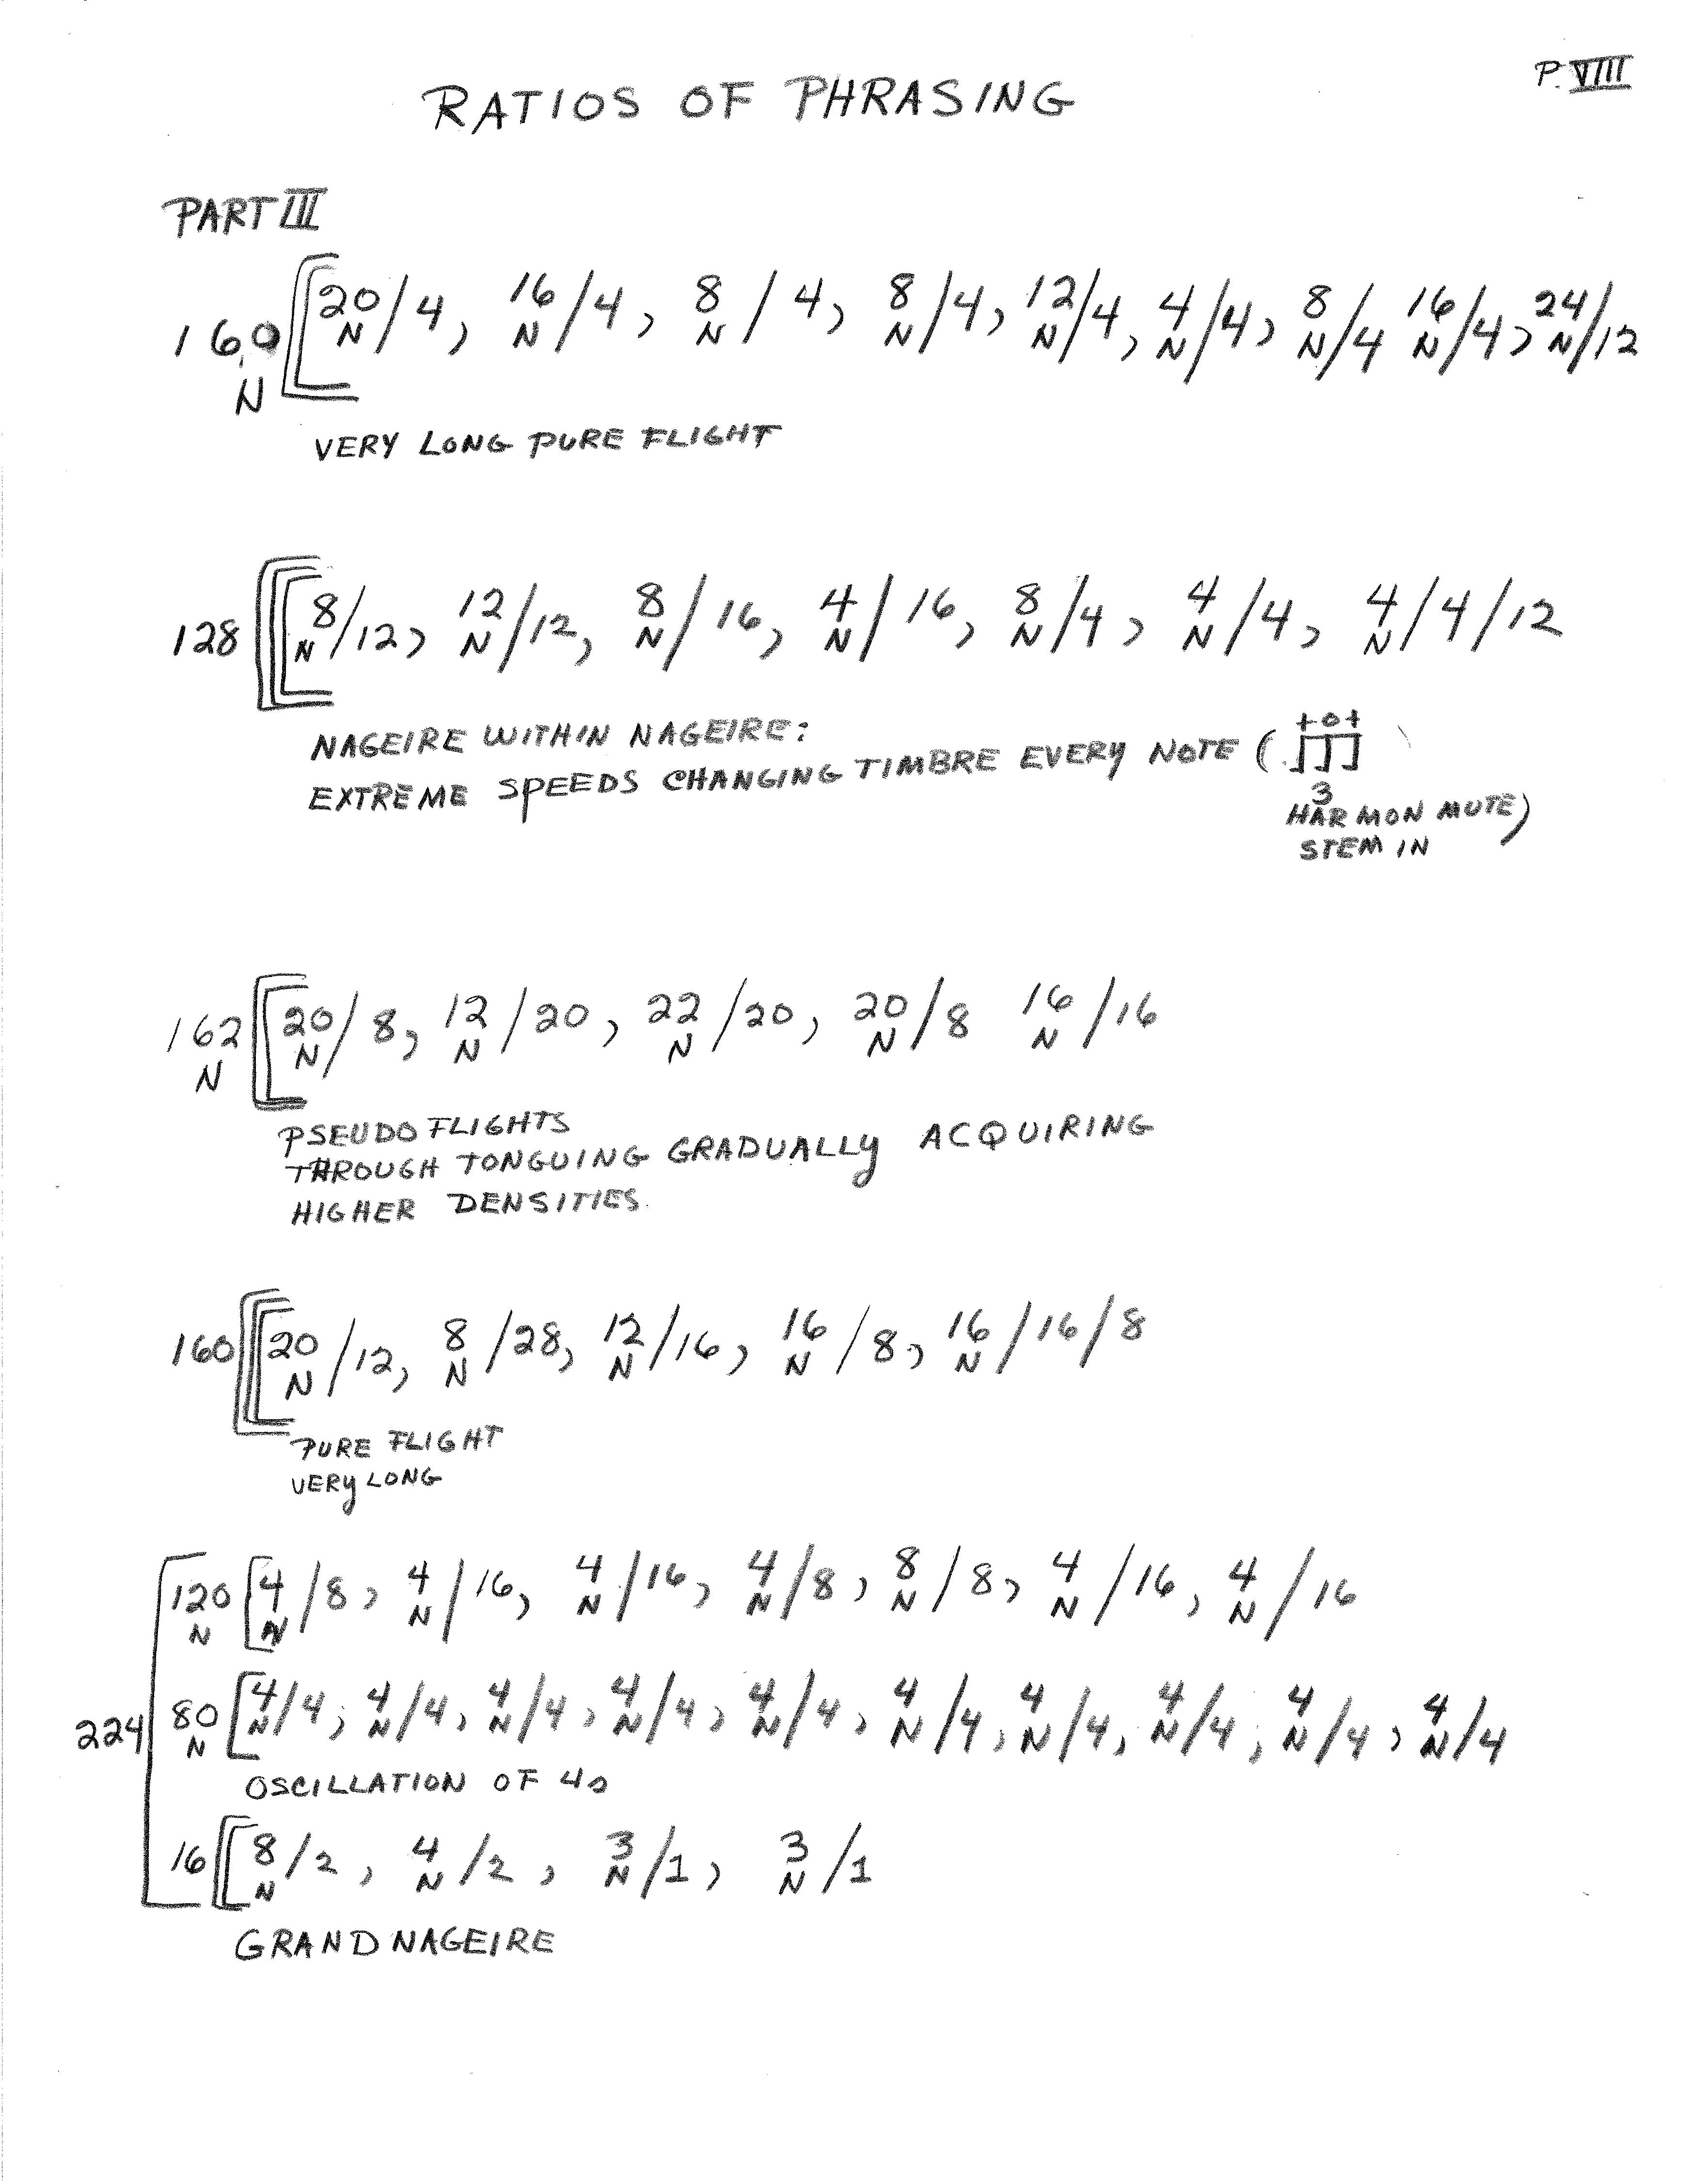 P. VIII
RATIOS OF PHRASING
PART III
160 N [[ 20 N / 4, 16 N / 4, 8 N / 4, 8 N / 4, 12 N / 4, 4 N / 4, 8 N / 4 16 N / 4, 24 N / 12
VERY LONG PURE FLIGHT
128 [[[ 8 N / 12, 12 N / 12, 8 N / 16, 4 N / 16, 8 N / 4, 4 N / 4, 4 N / 4 / 12
NAGEIRE WITHIN NAGEIRE:
EXTREME SPEEDS CHANGING TIMBRE EVERY NOTE ( + o +
3
HARMON MUTE)
STEM IN
162 N [[ 20 N / 8, 12 N / 20, 22 N / 20, 20 N / 8 16 N / 16
PSEUDO FLIGHTS
THROUGH TONGUING GRADUALLY ACQUIRING
HIGHER DENSITIES.
160 [[[ 20 N / 12, 8 N / 28, 12 N / 16, 16 N / 8, 16 N / 16 / 8
PURE FLIGHT
VERY LONG
120 N [ 4 N / 8, 4 N / 16, 4 N / 16, 4 N / 8, 8 N / 8, 4 N / 16, 4 N / 16
224 [ 80 N [ 4 N / 4, 4 N / 4, 4 N / 4, 4 N / 4, 4 N / 4, 4 N / 4, 4 N / 4, 4 N / 4, 4 N / 4, 4 N / 4
OSCILLATION OF 4s
16 [[ 8 N / 2, 4 N / 2, 3 N / 1, 3 N / 1
GRAND NAGEIRE